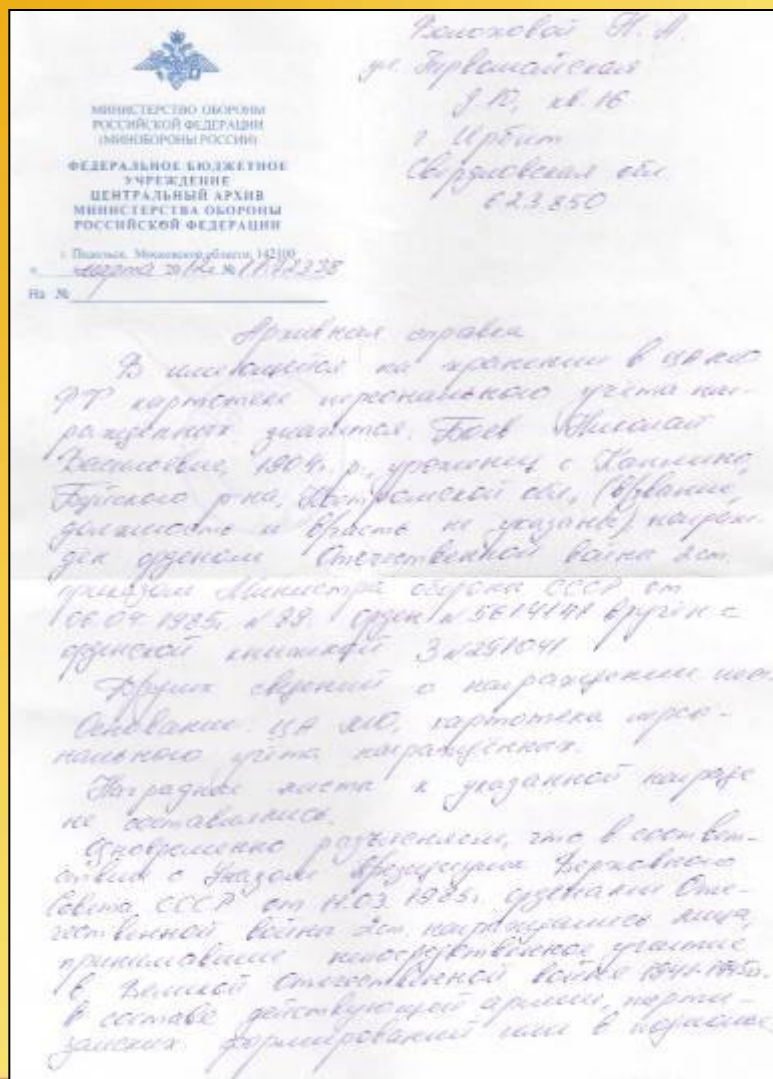 МИНИСТЕРСТВО ОБОРОНЫ
РОССИЙСКОЙ ФЕДЕРАЦИИ
(МИНОБОРОНЫ РОССИИ)
ФЕДЕРАЛЬНОЕ БЮДЖЕТНОЕ
УЧРЕЖДЕНИЕ
ЦЕНТРАЛЬНЫЙ АРХИВ
МИНИСТЕРСТВА ОБОРОНЫ
РОССИЙСКОЙ ФЕДЕРАЦИИ
г. Подольск, Московской области, 142100
марта 2012г. №
На №
Волоховой Н. А.
ул. Первомайская
д. 10, кв. 16
г Ирбит
Свердловская обл
623850
Архивная справка
В имеющейся на хранении в ЦАМО
РФ картотеке персонального учета наг-
ражденных значится. Боев Николай
Васильевич, 1904г. р., уроженец с.
Буйского р-на, Костромской обл., (в/звание,
должность и в/часть не указаны) награж-
ден орденом Отечественной война 2ст.
приказом Министра оборона СССР от
06.04.1985г. N 89. орден N вручен с
орденской книжкой З N 251041
Других сведений о награждении нет.
Основание: ЦА МО, картотека персо-
нального учёта награжденных.
Наградные листа к указанной награде
не составлялись.
Одновременно разъясняем, что в соответ-
ствии с Указом Президиума Верховного
Совета СССР от 11.03.1985г. орденами Оте-
чественной войны 2ст. награждались лица,
принимавшие непосредственное участие
в Великой Отечественной войне 1941-1945гг.
в составе действующей армии, парти-
занских формирований или в подполье,